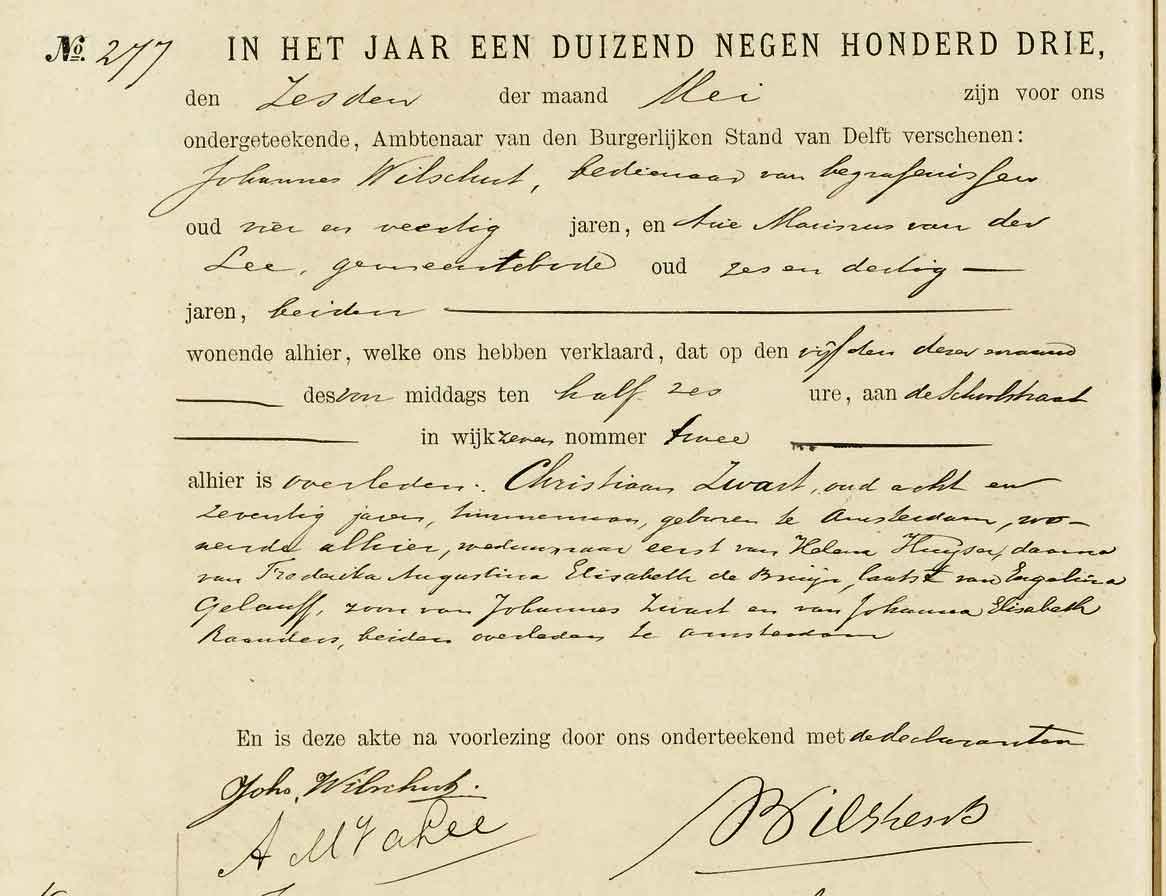 No. 277 IN HET JAAR EEN DUIZEND NEGEN HONDERD DRIE,
den Zesden der maand Mei zijn voor ons
ondergeteekende, Ambtenaar van den Burgerlijken Stand van Delft verschenen:
Johannes Wilschut, bedienaar van begrafenissen
oud vier en veertig jaren, en Arie Marinus van der
Lee, gemeentebode oud zes en dertig —
jaren, beiden —
wonende alhier, welke ons hebben verklaard, dat op den vijfden dezer maand
— des voor middags ten half zes ure, aan de Schoolstraat
— in wijk zeven nommer twee —
alhier is overleden: Christiaan Zwart, oud acht en
zeventig jaren, timmerman, geboren te Amsterdam, wo-
nende alhier, weduwnaar eerst van Helena Huijser, daarna
van Frederika Augustina Elisabeth de Bruijn, laatst van Engelina
Gelauff, zoon van Johannes Zwart en van Johanna Elisabeth
Raanders, beiden overleden te Amsterdam
En is deze akte na voorlezing door ons onderteekend met de declaranten
Johs. Wilschut.
A M v d Lee